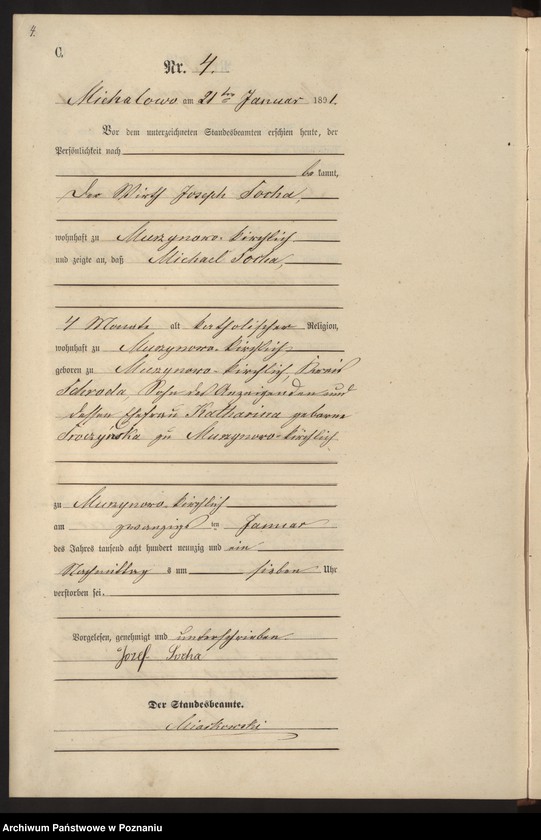 4.
C.
Nr. 4.
Michalowo am 21ten Januar 1891.
Vor dem unterzeichneten Standesbeamten erschien heute, der
Persönlichkeit nach
be kannt,
Der Wirth Joseph Socha,
wohnhaft zu Murzynowo-kirchlich
und zeigte an, daß Michael Socha,
4 Monate alt katholischer Religion,
wohnhaft zu Murzynowo-kirchlich
geboren zu Murzynowo-kirchlich, Kreis
Schroda Sohn des Anzeigenden und
dessen Ehefrau Katharina geborene
zu Murzynowo-kirchlich
zu Murzynowo-kirchlich
am zwanzigsten Januar
des Jahres tausend acht hundert neunzig und ein
Nachmittags um sieben Uhr
verstorben sei.
Vorgelesen, genehmigt und unterschrieben
Józef Socha
Der Standesbeamte.
Miaskowski
Archiwum Państwowe w Poznaniu